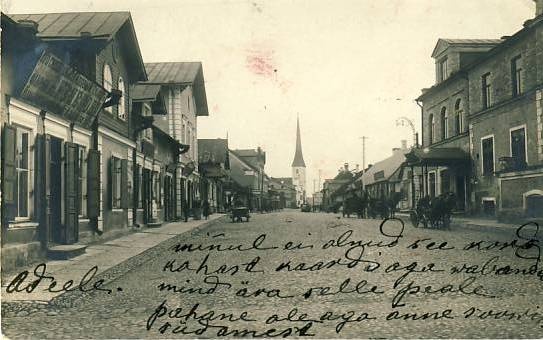 minul ei olnud see kord
kohast kaardi aga vabanda
mind ära selle peale
pahane ole aga anne soowi
südamest
Adeele.